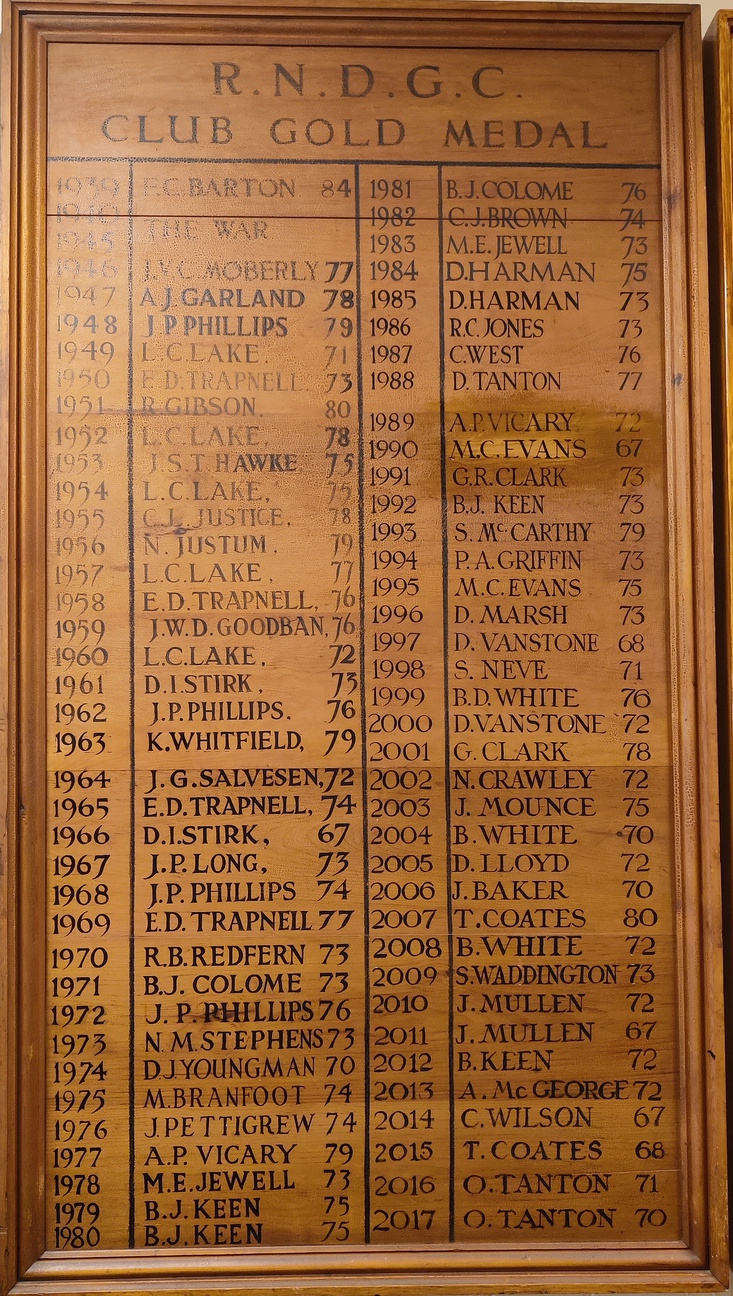 R.N.D.G.C.
CLUB GOLD MEDAL
1939 F.C.BARTON 84
1940
1945 THE WAR
1946 J.V.C.MOBERLY 77
1947 A.J.GARLAND 78
1948 J P PHILLIPS 79
1949 L.C.LAKE. 71
1950 E.D.TRAPNELL. 73
1951 R.GIBSON. 80
1952 L.C.LAKE. 78
1953 J.S.T.HAWKE 75
1954 L.C.LAKE, 75
1955 C.L. JUSTICE. 78
1956 N. JUSTUM. 79
1957 L.C.LAKE, 77
1958 E.D.TRAPNELL, 76
1959 J.W.D.GOODBAN, 76
1960 L.C.LAKE, 72
1961 D.I.STIRK, 73
1962 J.P.PHILLIPS. 76
1963 K.WHITFIELD, 79
1964 J.G.SALVESEN, 72
1965 E.D.TRAPNELL, 74
1966 D.I.STIRK, 67
1967 J.P.LONG, 73
1968 J.P.PHILLIPS 74
1969 E.D.TRAPNELL 77
1970 R.B.REDFERN 73
1971 B.J.COLOME 73
1972 J.P.PHILLIPS 76
1973 N.M.STEPHENS 73
1974 D.J.YOUNGMAN 70
1975 M.BRANFOOT 74
1976 J.PETTIGREW 74
1977 A.P.VICARY 79
1978 M.E.JEWELL 73
1979 B.J.KEEN 75
1980 B.J.KEEN 75
1981 B.J.COLOME 76
1982 C.J.BROWN 74
1983 M.E.JEWELL 73
1984 D.HARMAN 75
1985 D.HARMAN 73
1986 R.C.JONES 73
1987 C.WEST 76
1988 D.TANTON 77
1989 A.P.VICARY 72
1990 M.C.EVANS 67
1991 G.R.CLARK 73
1992 B.J. KEEN 73
1993 S. Mc.CARTHY 79
1994 P.A.GRIFFIN 73
1995 M.C.EVANS 75
1996 D. MARSH 73
1997 D. VANSTONE 68
1998 S. NEVE 71
1999 B.D.WHITE 76
2000 D.VANSTONE 72
2001 G. CLARK 78
2002 N.CRAWLEY 72
2003 J. MOUNCE 75
2004 B.WHITE 70
2005 D. LLOYD 72
2006 J.BAKER 70
2007 T.COATES 80
2008 B.WHITE 72
2009 S.WADDINGTON 73
2010 J.MULLEN 72
2011 J.MULLEN 67
2012 B.KEEN 72
2013 A.McGEORGE 72
2014 C.WILSON 67
2015 T.COATES 68
2016 O.TANTON 71
2017 O.TANTON 70